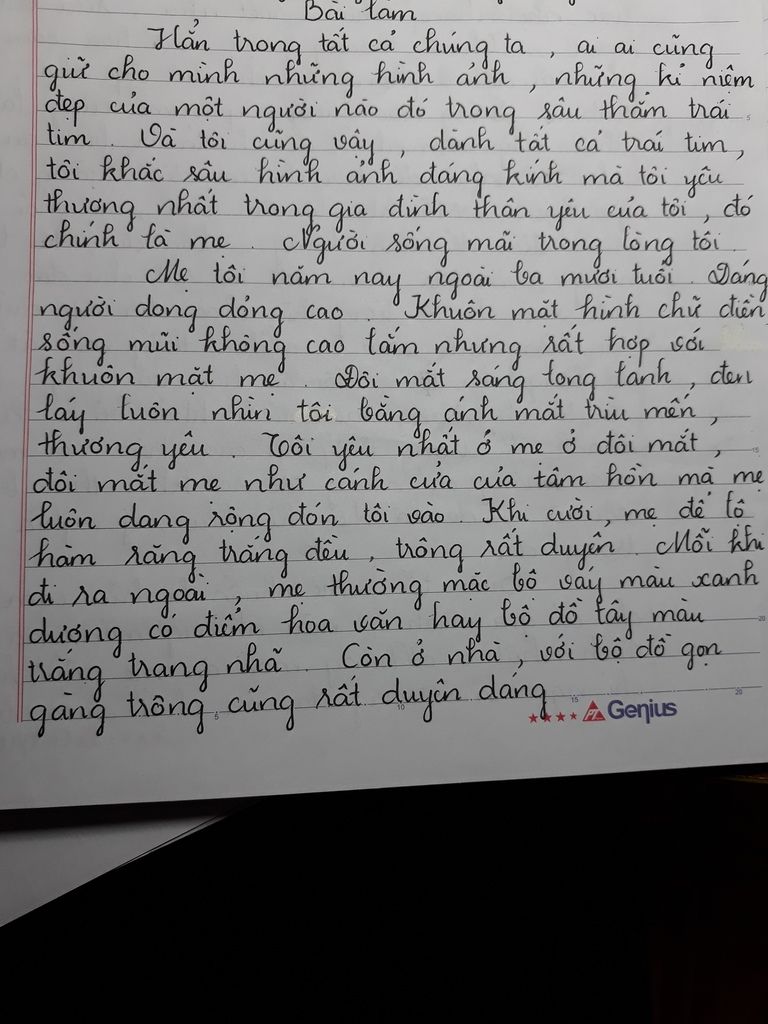 Bài làm
Hẳn trong tất cả chúng ta, ai ai cũng
giữ cho mình những hình ảnh, những kỉ niệm
đẹp của một người nào đó trong sâu thẳm trái
tim. Và tôi cũng vậy, dành tất cả trái tim,
tôi khắc sâu hình ảnh đáng kính mà tôi yêu
thương nhất trong gia đình thân yêu của tôi, đó
chính là mẹ. Người sống mãi trong lòng tôi.
Mẹ tôi năm nay ngoài ba mươi tuổi. Dáng
người dong dỏng cao. Khuôn mặt hình chữ điền
sống mũi không cao lắm nhưng rất hợp với
khuôn mặt mẹ. Đôi mắt sáng long lanh, đen
láy luôn nhìn tôi bằng ánh mắt trìu mến,
thương yêu. Tôi yêu nhất ở mẹ ở đôi mắt,
đôi mắt mẹ như cánh cửa của tâm hồn mà mẹ
luôn dang rộng đón tôi vào. Khi cười, mẹ để lộ
hàm răng trắng đều, trông rất duyên. Mỗi khi
đi ra ngoài, mẹ thường mặc bộ váy màu xanh
dương có điểm hoa văn hay bộ đồ tây màu
trắng trang nhã. Còn ở nhà, với bộ đồ gọn
gàng trông cũng rất duyên dáng
PL Genius